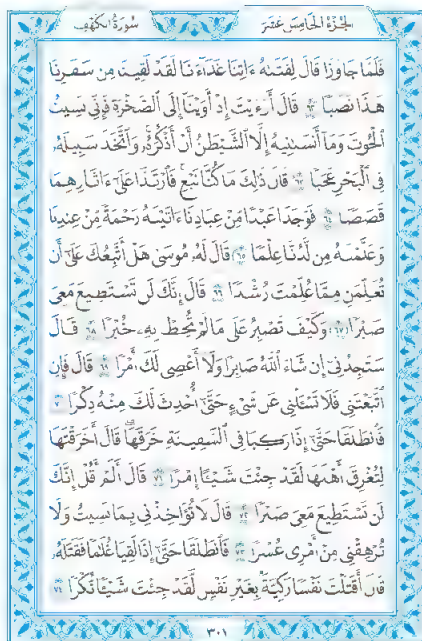 الجزء الخامس عشر
سورة الكهف
فَلَمَّا جَاوَزَا قَالَ لِفَتَىٰهُ ءَاتِنَا غَدَآءَنَا لَقَدْ لَقِينَا مِن سَفَرِنَا
هَٰذَا نَصَبًا ٦٢ قَالَ أَرَءَيْتَ إِذْ أَوَيْنَآ إِلَى ٱلصَّخْرَةِ فَإِنِّى نَسِيتُ
ٱلْحُوتَ وَمَآ أَنسَىٰنِيهُ إِلَّا ٱلشَّيْطَٰنُ أَنْ أَذْكُرَهُۥ وَٱتَّخَذَ سَبِيلَهُۥ
فِى ٱلْبَحْرِ عَجَبًا ٦٣ قَالَ ذَٰلِكَ مَا كُنَّا نَبْغِ فَٱرْتَدَّا عَلَىٰٓ ءَاثَارِهِمَا
قَصَصًا ٦٤ فَوَجَدَا عَبْدًا مِّنْ عِبَادِنَآ ءَاتَيْنَٰهُ رَحْمَةً مِّنْ عِندِنَا
وَعَلَّمْنَٰهُ مِن لَّدُنَّا عِلْمًا ٦٥ قَالَ لَهُۥ مُوسَىٰ هَلْ أَتَّبِعُكَ عَلَىٰٓ أَن
تُعَلِّمَنِ مِمَّا عُلِّمْتَ رُشْدًا ٦٦ قَالَ إِنَّكَ لَن تَسْتَطِيعَ مَعِىَ
صَبْرًا ٦٧ وَكَيْفَ تَصْبِرُ عَلَىٰ مَا لَمْ تُحِطْ بِهِۦ خُبْرًا ٦٨ قَالَ
سَتَجِدُنِىٓ إِن شَآءَ ٱللَّهُ صَابِرًا وَلَآ أَعْصِى لَكَ أَمْرًا ٦٩ قَالَ فَإِنِ
ٱتَّبَعْتَنِى فَلَا تَسْـَٔلْنِى عَن شَىْءٍ حَتَّىٰٓ أُحْدِثَ لَكَ مِنْهُ ذِكْرًا ٧٠
فَٱنطَلَقَا حَتَّىٰٓ إِذَا رَكِبَا فِى ٱلسَّفِينَةِ خَرَقَهَا قَالَ أَخَرَقْتَهَا
لِتُغْرِقَ أَهْلَهَا لَقَدْ جِئْتَ شَيْـًٔا إِمْرًا ٧١ قَالَ أَلَمْ أَقُلْ إِنَّكَ
لَن تَسْتَطِيعَ مَعِىَ صَبْرًا ٧٢ قَالَ لَا تُؤَاخِذْنِى بِمَا نَسِيتُ وَلَا
تُرْهِقْنِى مِنْ أَمْرِى عُسْرًا ٧٣ فَٱنطَلَقَا حَتَّىٰٓ إِذَا لَقِيَا غُلَٰمًا فَقَتَلَهُۥ
قَالَ أَقَتَلْتَ نَفْسًا زَكِيَّةًۢ بِغَيْرِ نَفْسٍ لَّقَدْ جِئْتَ شَيْـًٔا نُّكْرًا ٧٤
٣٠١